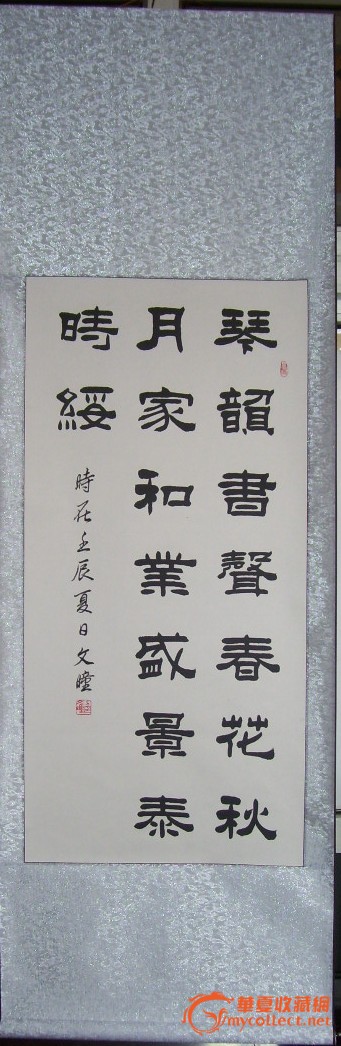 琴韻書聲春花秋
月家和業盛景泰
時綏
時在壬辰夏日文瞳
華夏收藏網
mycollect.net